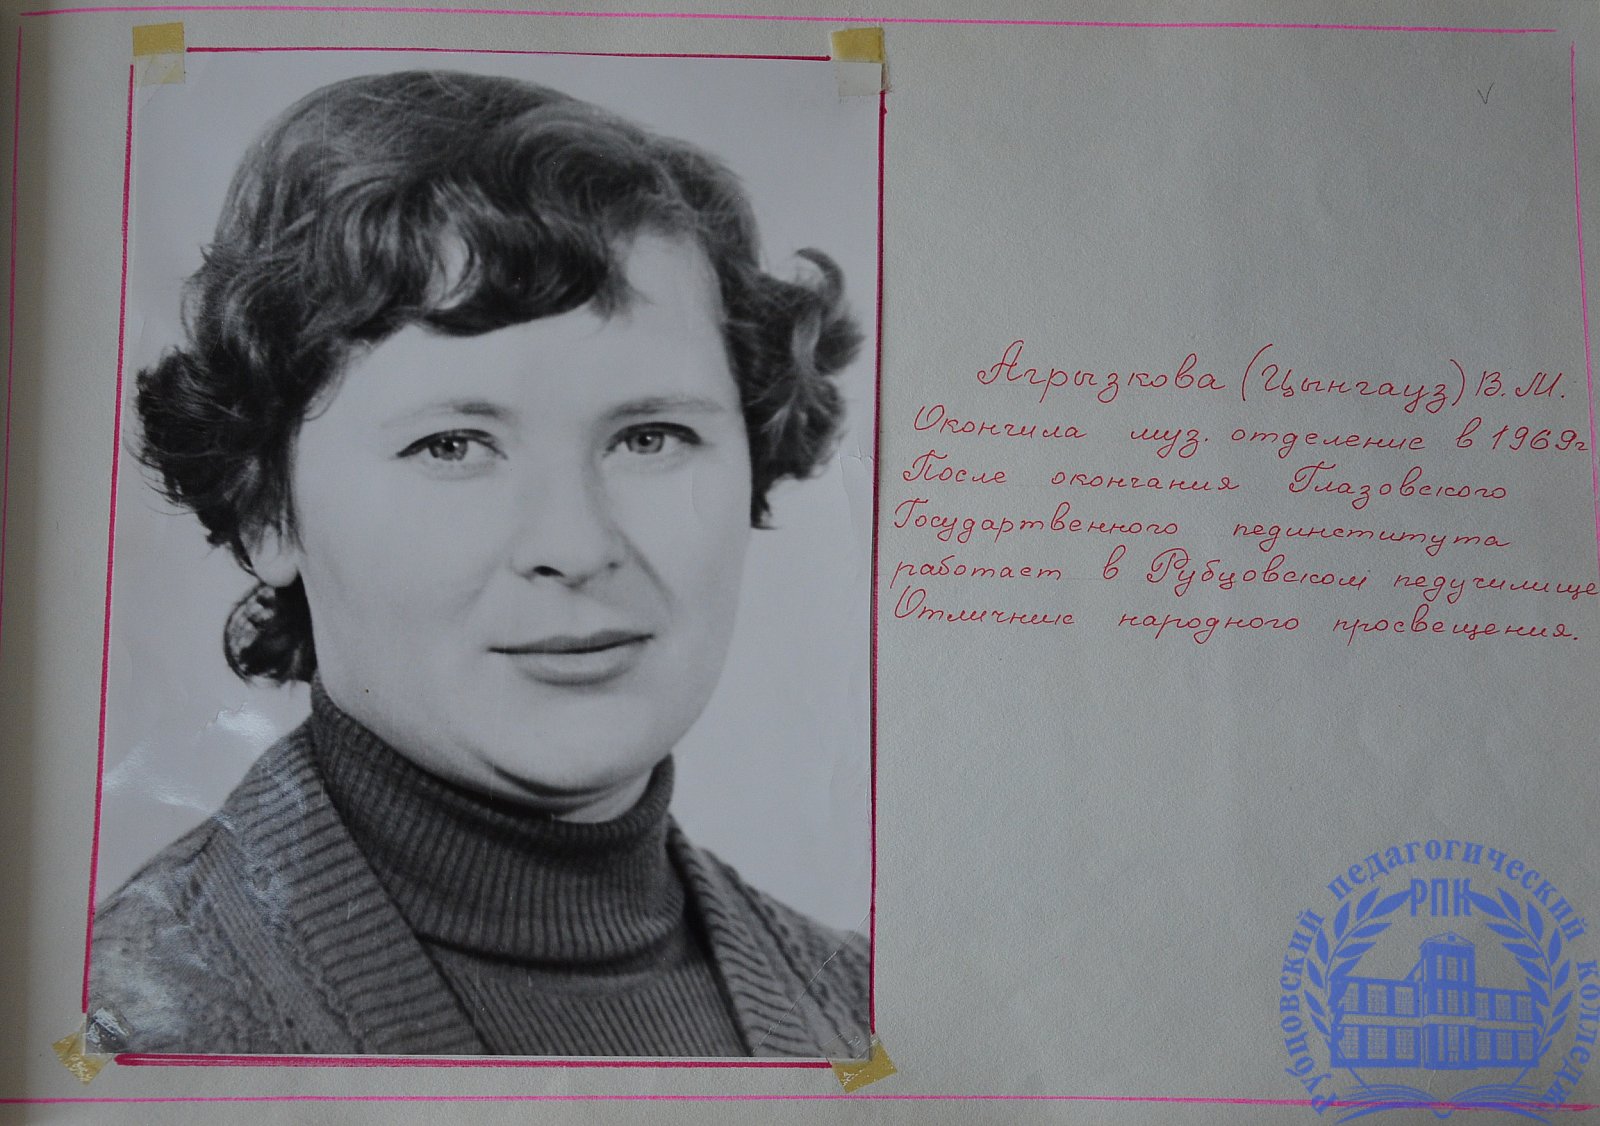 Агрызкова (Цынгауз) В. М.
Окончила муз. отделение в 1969г
После окончания Глазовского
Государтвенного пединститута
работает в Рубцовском педучилище
Отличник народного просвещения.
Рубцовский педагогический колледж
РПК